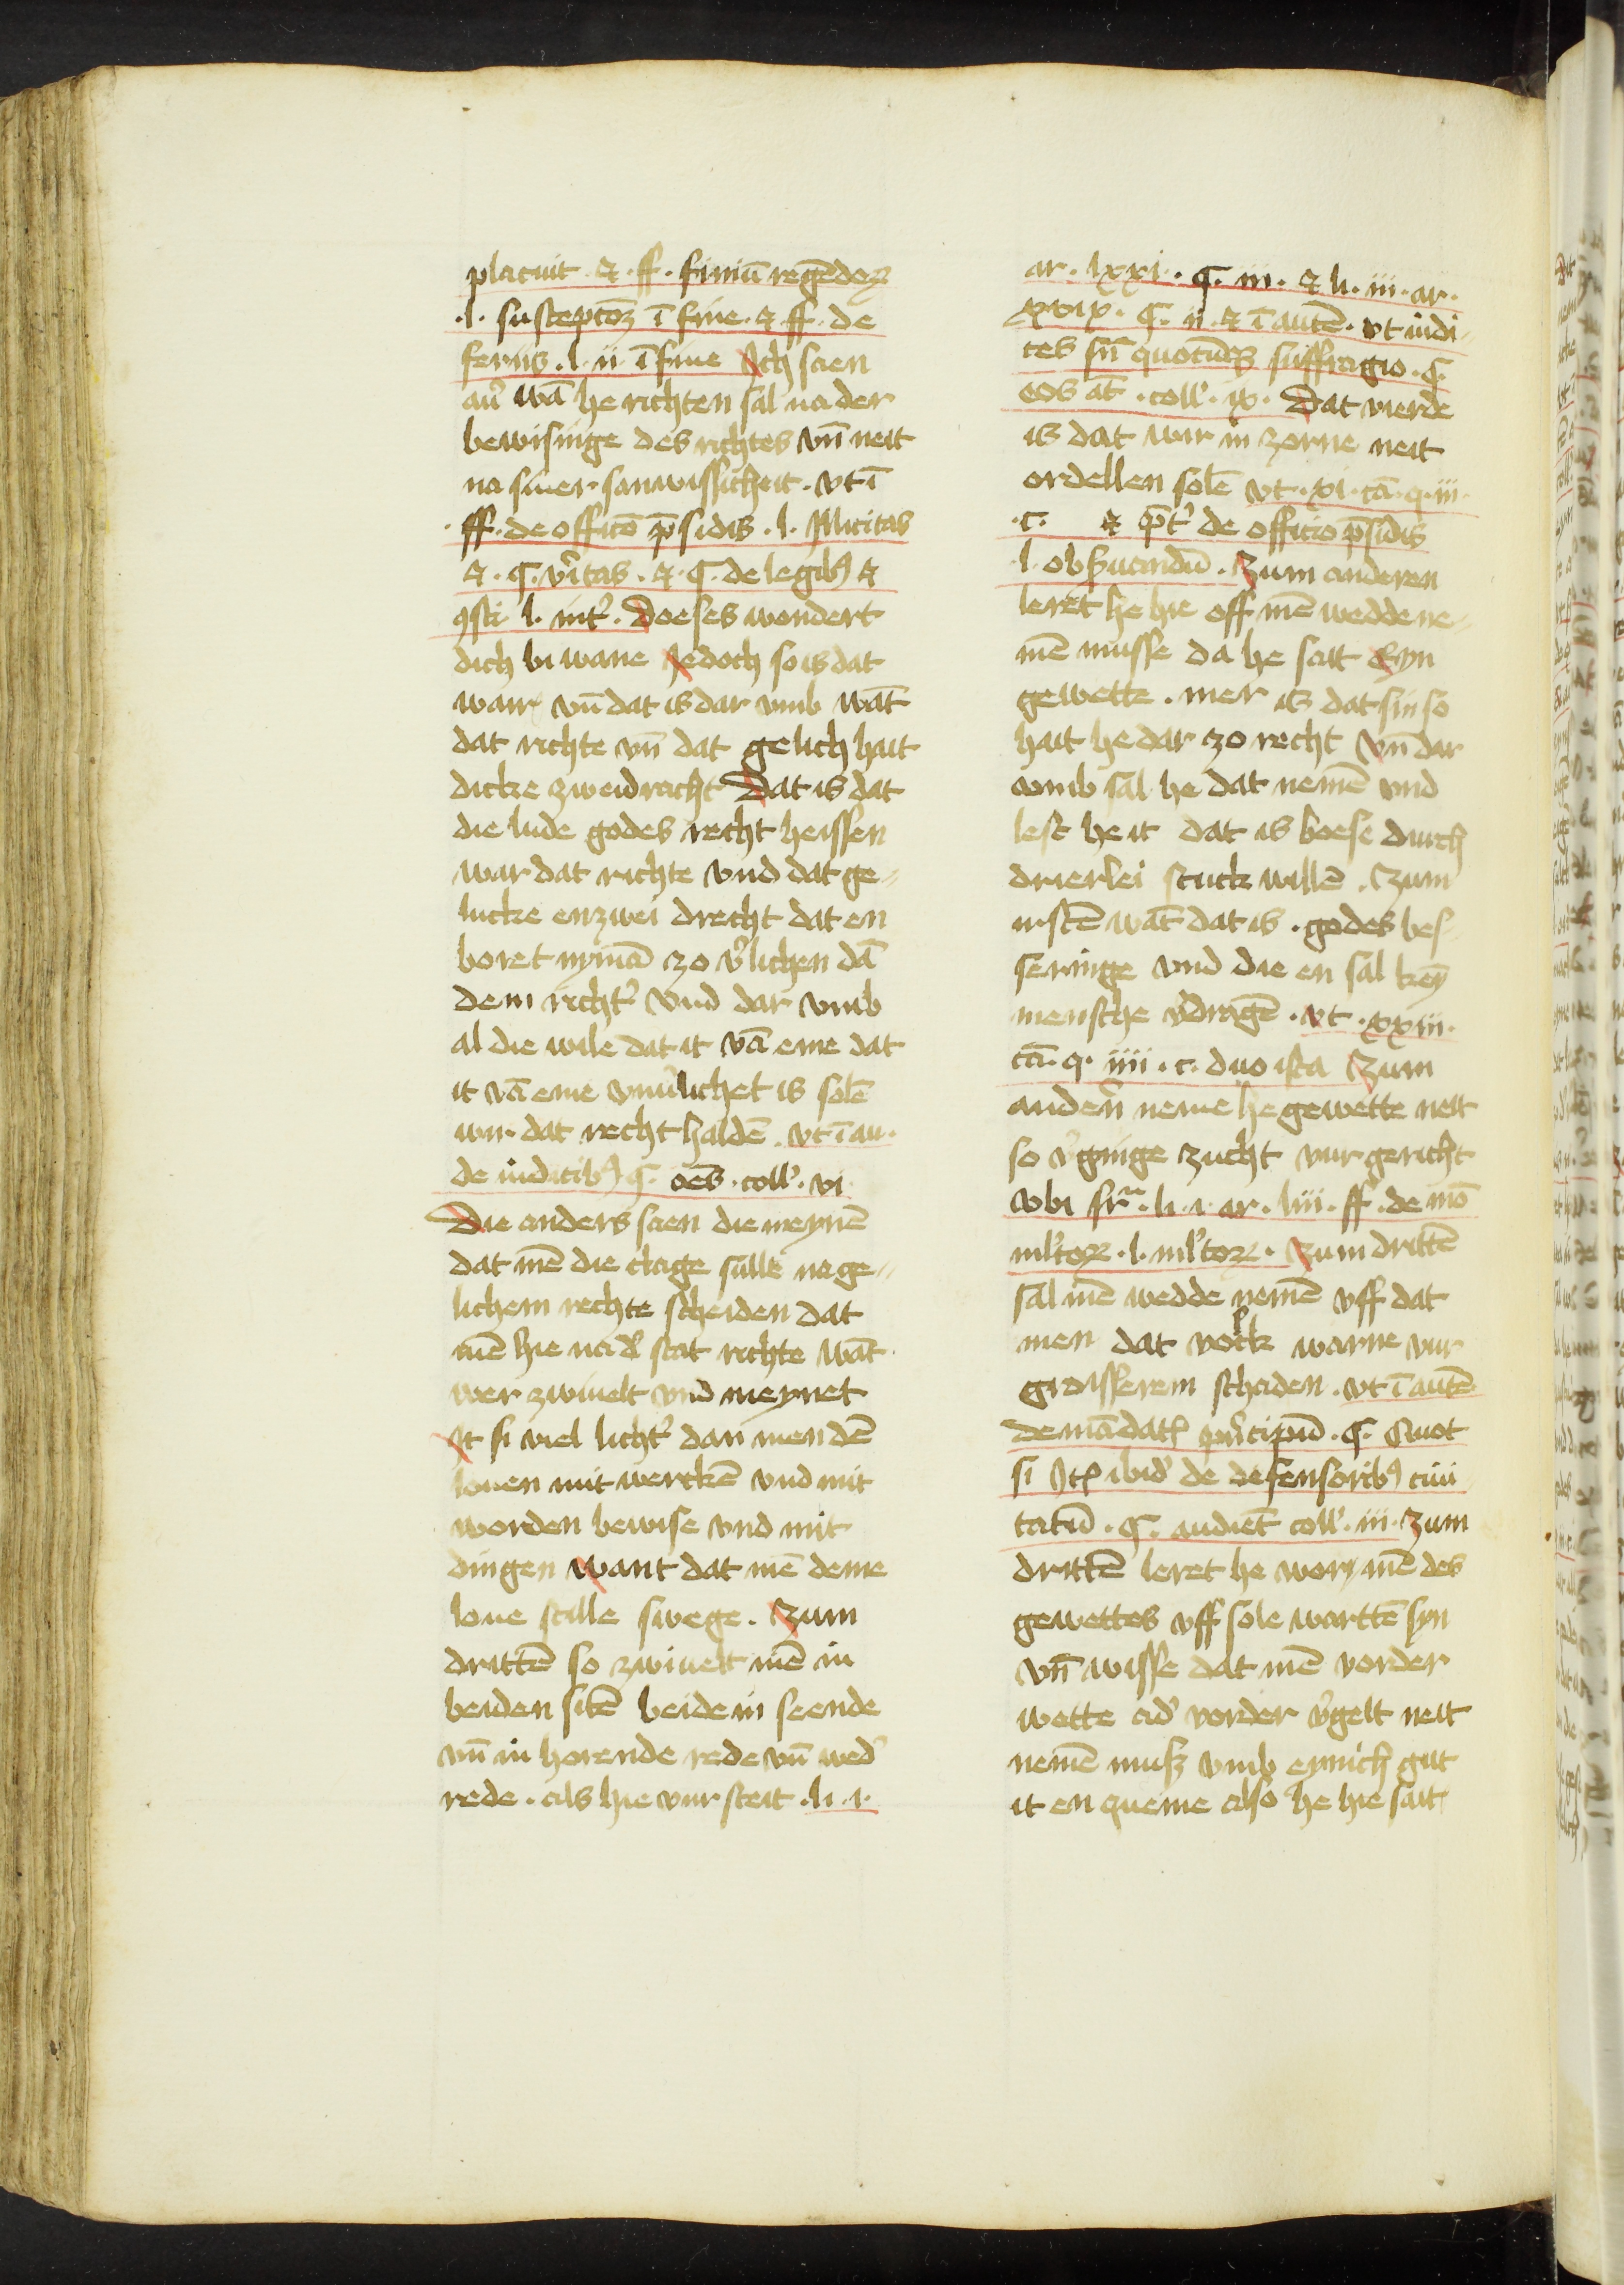 placuit · ⁊ · ff · finiū regēdoꝝ
· l · susceptōꝫ ī fine · ⁊ · ff · de
feriis · l · ii · ī fine Ich saen
auͥ wā he richten sal na der
bewisinge des richtes vn̄ neit
na siner sanwissicheit · vt ī
· ff · de officō p̄sidis · l · Illicitas
⁊ · ꝯ · v̓itas · ⁊ · ꝯ · de legibꝰ ⁊
ꝯsti l · int̓ · Doeses wondert
dich bi wane Jedoch so is dat
wair vn̄ dat is dar vmb wāt
dat richte vn̄ dat gelich hait
dicke zweidracht Dat is dat
die lude godes recht heissen
war dat richte vnd dat ge-
lucke enzwei drecht dat en
boret nymā zo v̓lichen dā
dem richt̓ vnd dar vmb
al die wile dat it vā eme dat
it vā eme vnu̓lichet is solē
wir dat recht haldē · vt ī au ·
de iudicibꝰ ꝯ · oēs · coll̓ · vi ·
Die anders saen die meynē
dat mē die clage sulle na ge-
lichem rechte scheiden dat
mē hie na d̓ stat richte wāt
wer zwiuelt vnd meynet
It si viel licht̓ dan men dē
louen mit werckē vnd mit
worden bewise vnd mit
dingen want dat mē deme
loue stille swege · Zum
drittē so zwiuelt mē in
beiden sitē beide in seende
vn̄ in horende rede vn̄ wed̓
rede · als hie vur steit · li · i ·
ar · lxxi · ꝯ · iii · ⁊ li · iii · ar ·
xxix · ꝯ · ii · ⁊ ī autē · vt iudi-
ces sn̄ quocūqꝫ suffragio · ꝯ ·
eos āt · coll̓ · ix · Dat vierde
is dat wir in zorne neit
ordellen solē vt · xi · cā · q · iii ·
· c · ⁊ p̄t̓ de officio p̄sidis
· l · obseruandū · Zum anderen
leret he hie off mē wedde ne-
mē musse da he sait Eyn
gewette · mer is dat sin so
hait he dar zo recht vn̄ dar
vmb sal he dat nemē vnd
lest he it dat is boese durch
drierlei stuck willē · Zum
irstē wāt dat is · godes bes-
seringe vnd die en sal keȳ
mensche v̓dragē · vt · xxiii ·
cā · q · iiii · c · duo ista Zum
ander̄n neme he gewette neit
so v̓ginge zucht vur gericht
vbi sr̄ · li · i · ar · liii · ff · de mō
ml̓toꝝ · l · ml̓toꝝ · Zum drittē
sal mē wedde nemē vff dat
men dat volck warne vur
groisserem schaden · vt ī autē
de mādatꝭ prīcipū · ꝯ · Quot
si Itꝭ ibid̓ de defensoribꝰ ciui-
tatū · ꝯ · audiēt coll̓ · iii · Zum
drittē leret he wory mē des
gewettes vff sole warttē syn
vn̄ wisse dat mē vorder
wette ad̓ vorder v̓gelt neit
nemē muß vmb eynich gut
it en queme also he hie sait